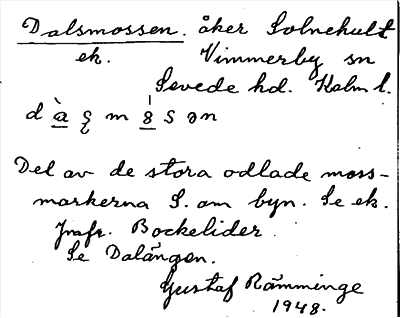 Dalsmossen. åker Solnehult
ek. Vimmerby sn
Sevede hd. Kalm l.
Del av de stora odlade moss-
markerna S. om byn. Se ek.
Jmfr. Bockelider.
Se Dalängen.
Gustaf Rämminge
1948.